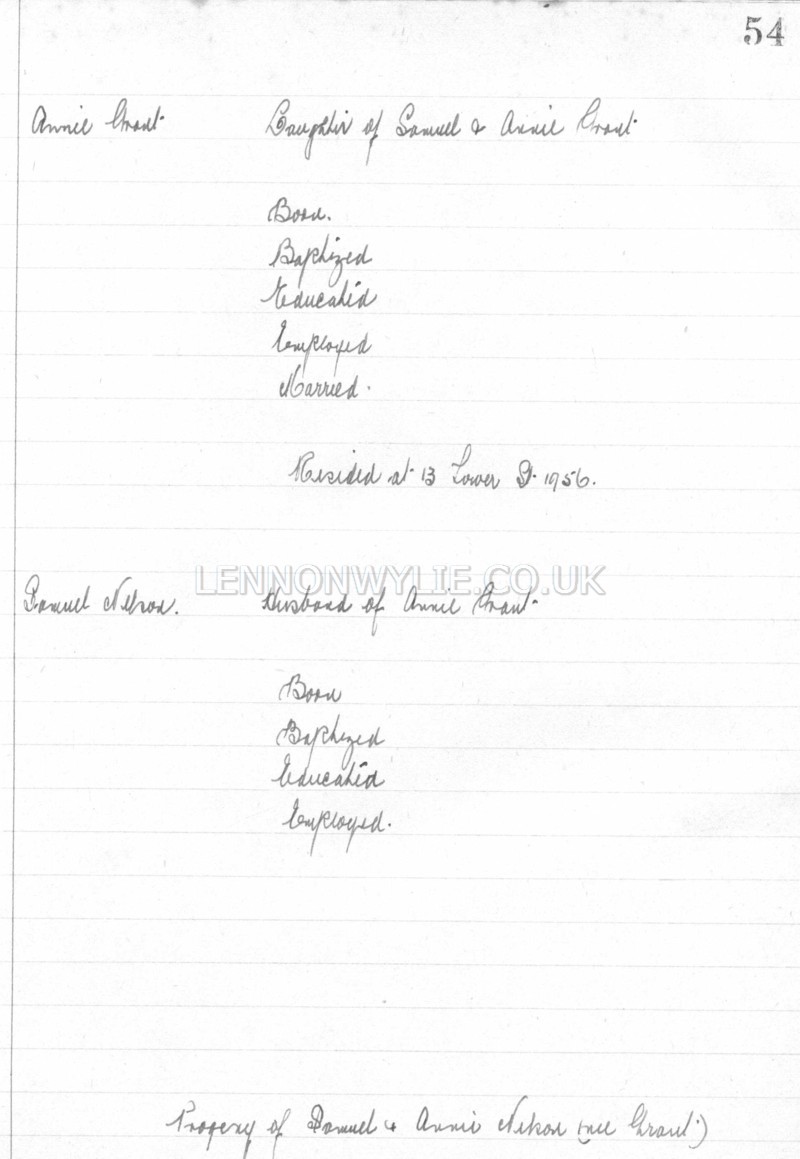 54
Annie Grant Daughter of Samuel & Annie Grant
Born.
Baptized
Educated
Employed
Married.
Resided at 13 Lower St. 1956.
LENNONWYLIE.CO.UK
Samuel Nelson. Husband of Annie Grant
Born
Baptized
Educated
Employed.
Progeny of Samuel & Annie Nelson (nee Grant)